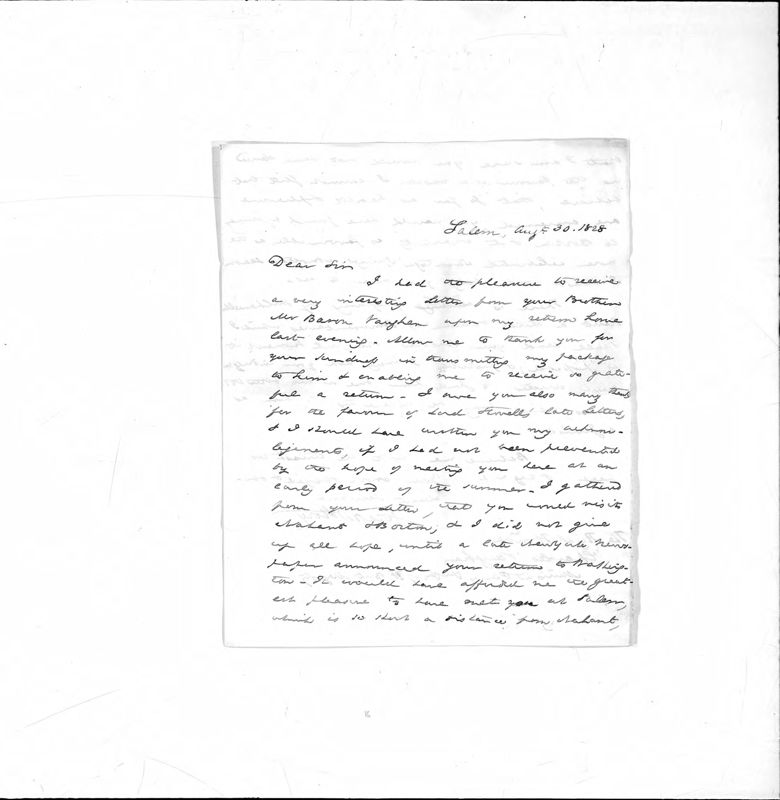 Salem, Augt 30. 1828
Dear Sir
I had the pleasure to receive
a very interesting letter from your Brother
Mr Baron Vaughan upon my return home
last evening. Allow me to thank you for
your kindness in transmitting my package
to him & enabling me to receive so grate-
ful a return. I owe you also many thanks
for the favour of Lord Stowell's late letters,
& I should have written you my acknow-
legements, if I had not been prevented
by the hope of meeting you here at an
early period of the summer. I gathered
from your letter, that you would visit
Nahant & Boston, & I did not give
up all hope, until a late NewYork News-
paper announced your return to Washing-
ton. It would have afforded me the great-
est pleasure to have met you at Salem,
which is so short a distance from Nahant,